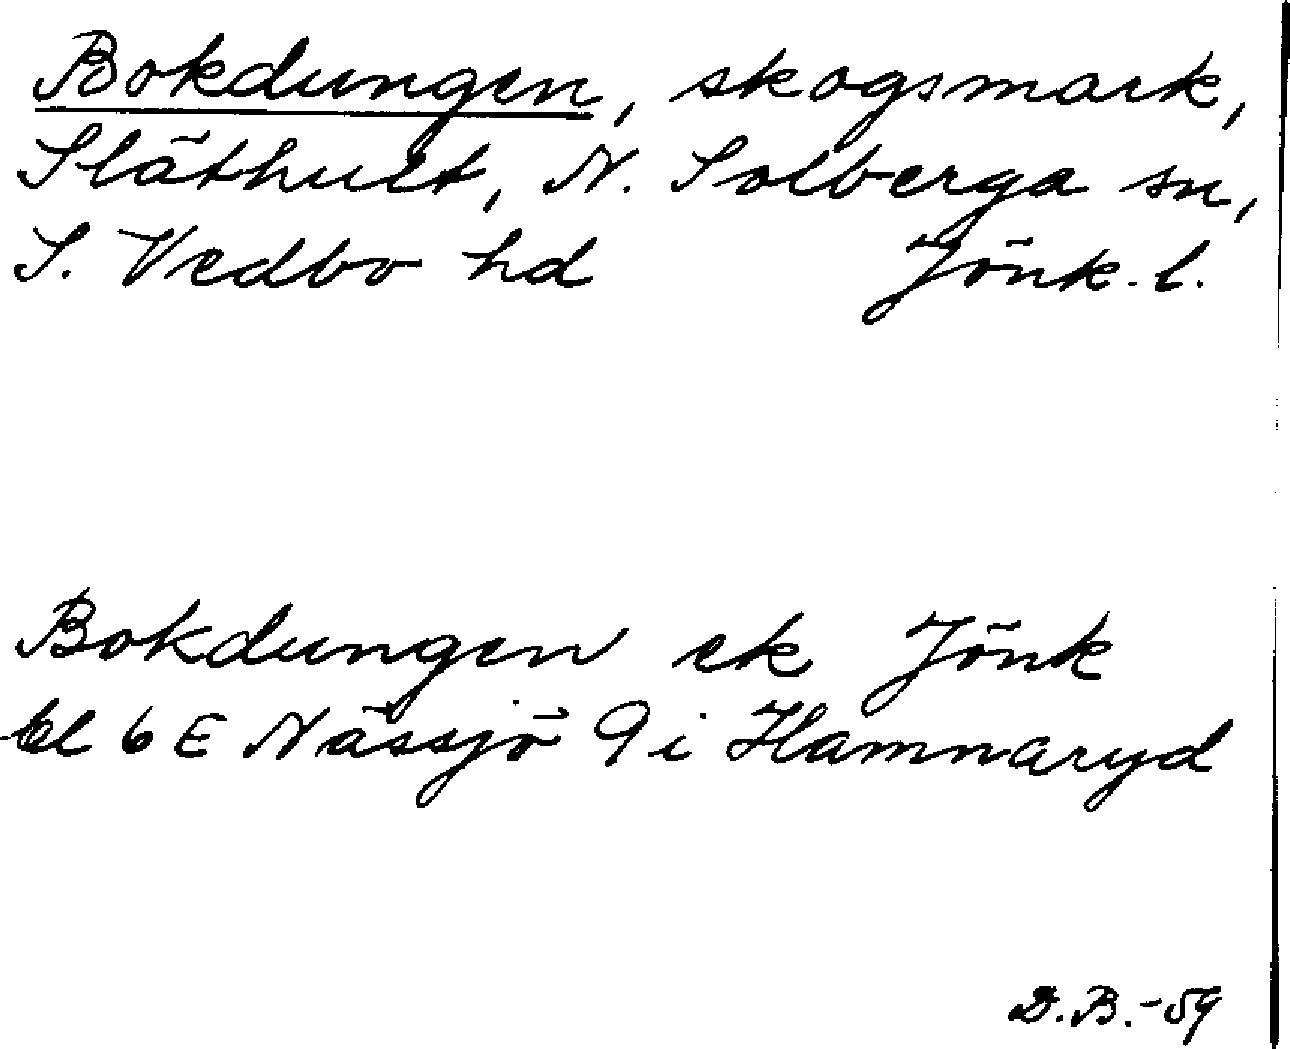 Bokdungen, skogsmark,
Släthult, N. Solberga sn,
S. Vedbo hd Jönk. l.
Bokdungen ek Jönk
bl 6 E Nässjö 9 i Hamnaryd
D.B.-59